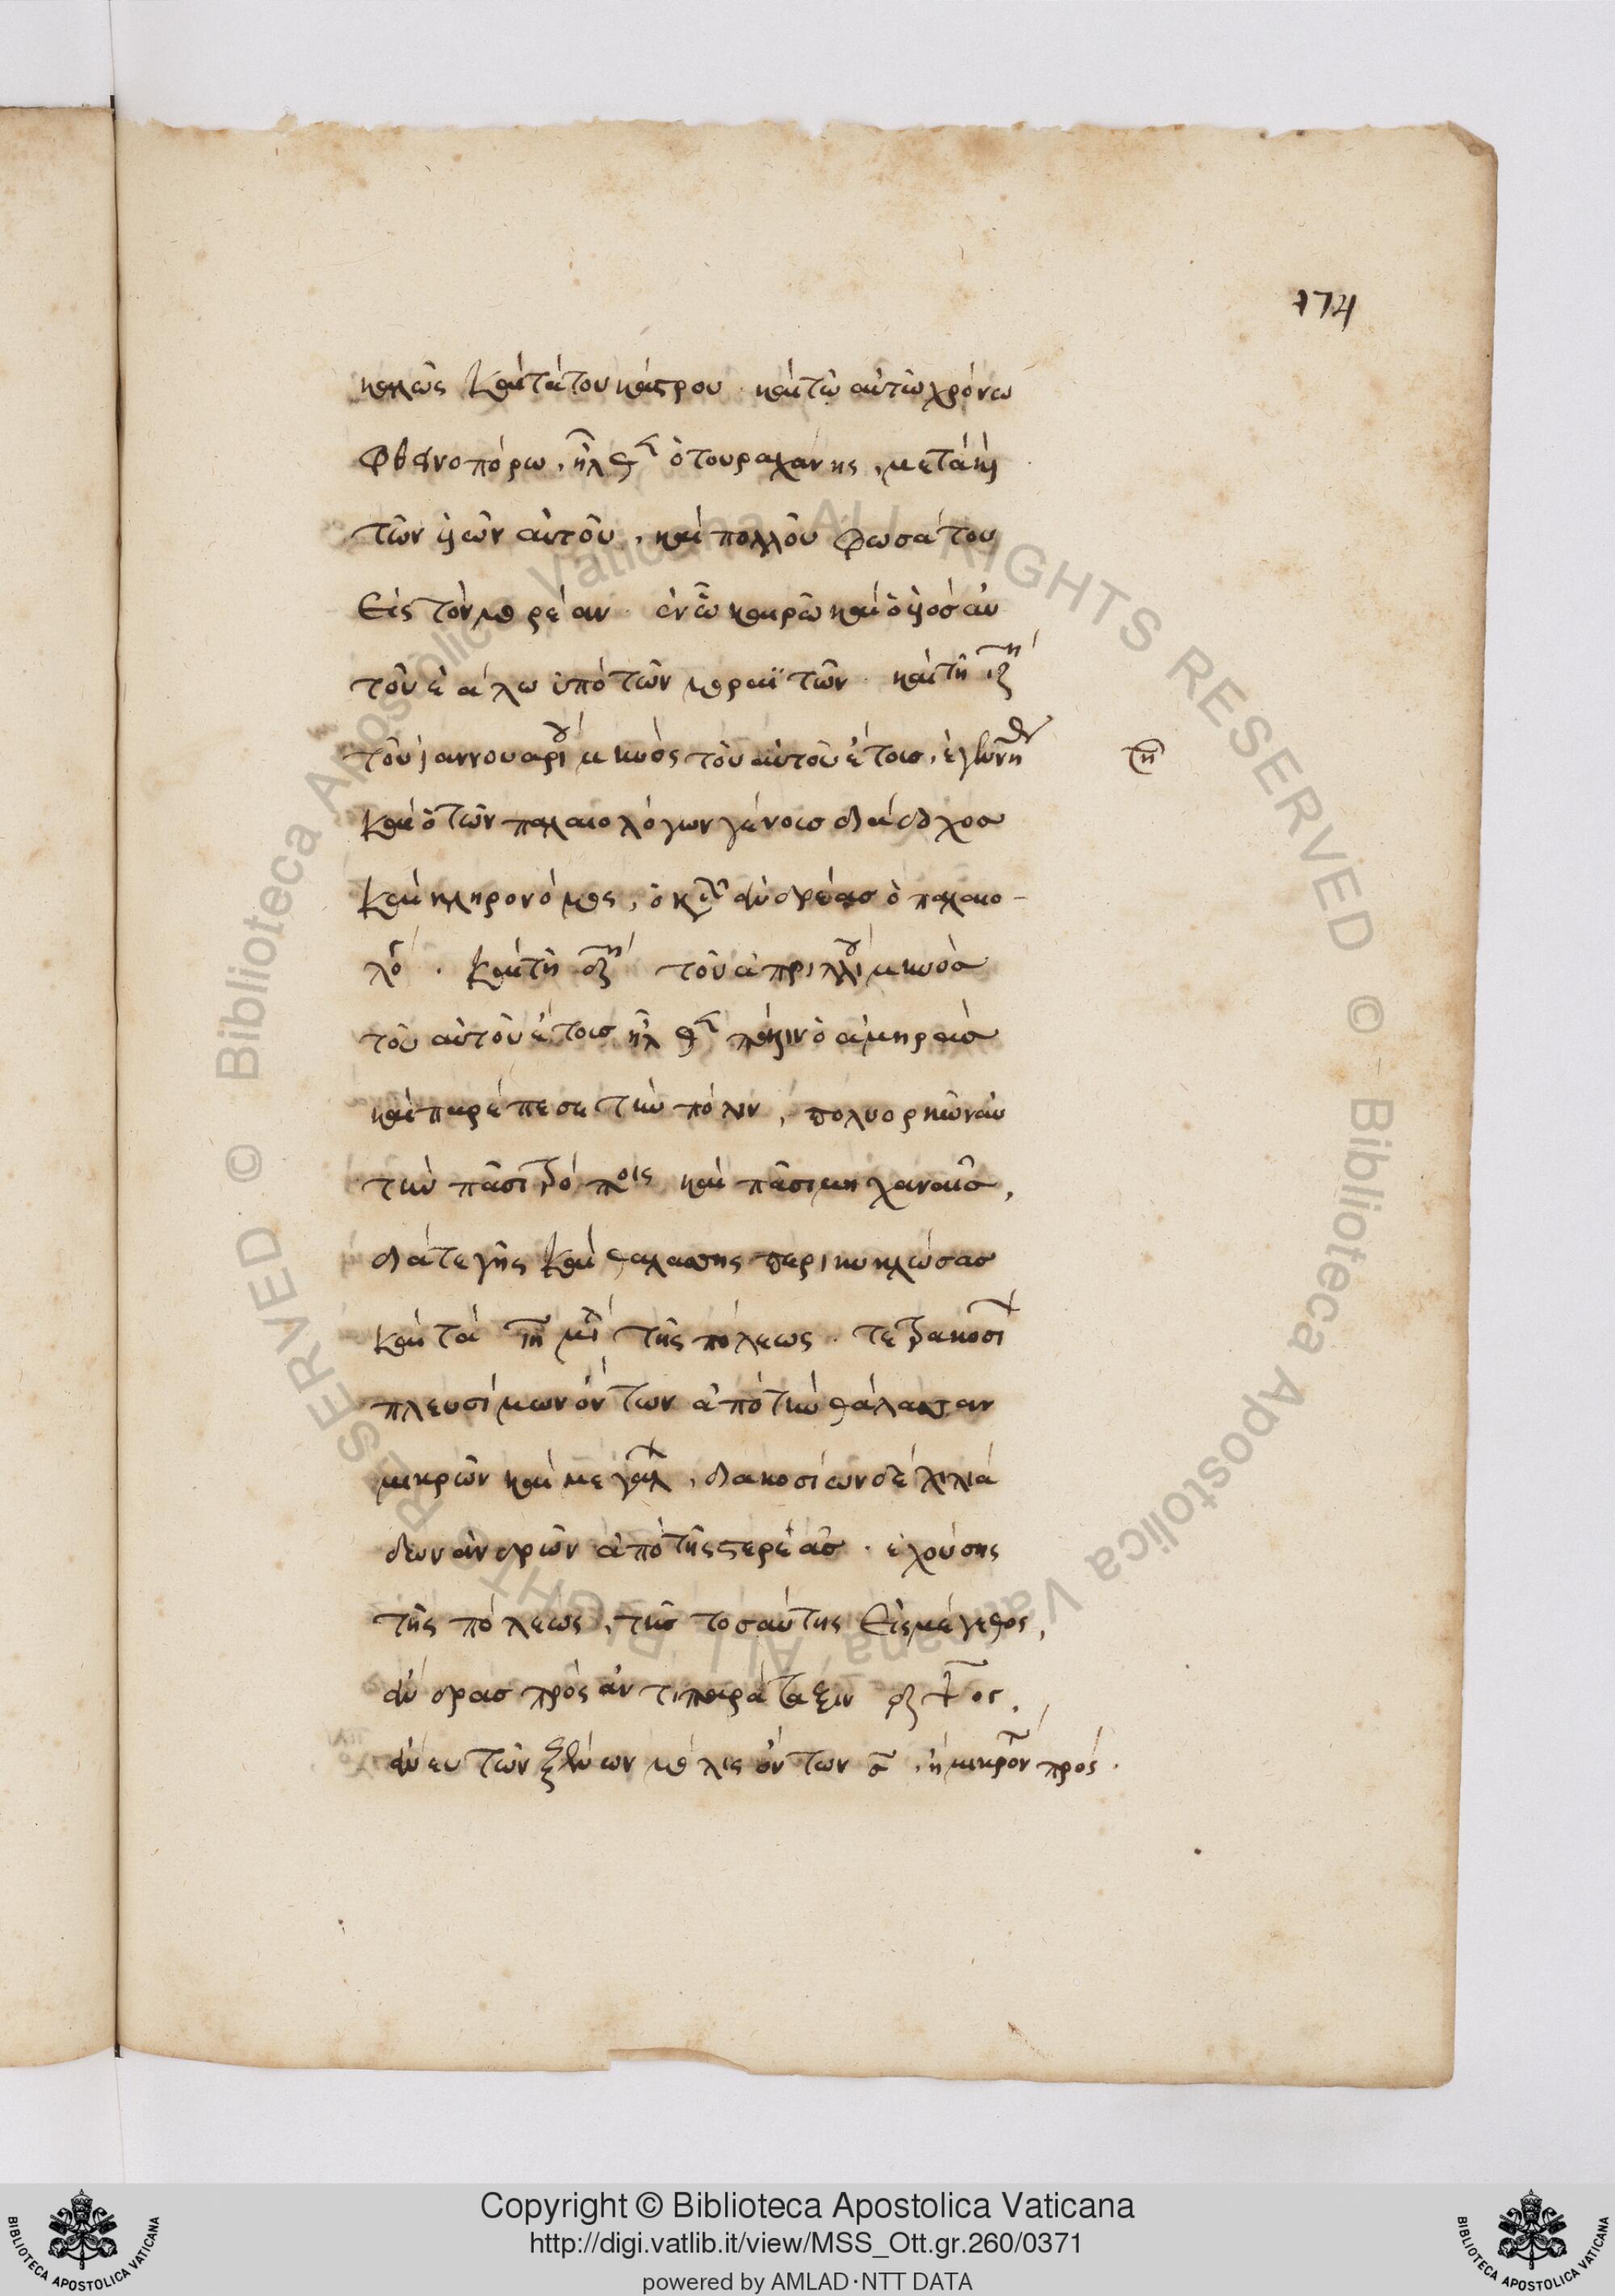 174
καλῶς καὶ τὰ τοῦ κάστρου. καὶ τῷ αὐτῷ χρόνω
φθινοπόρω, ἦλθεν ὁ τουραχάνης, μετὰ καὶ
τῶν ὑιῶν αὐτοῦ, καὶ πολλοῦ φωσάτου
εἰς τὸν μορέαν. ἐν ὧ καιρῶ καὶ ὁ ὑιὸς αὐ
τοῦ ἑάλω ὑπὸ τῶν μοραϊτῶν. καὶ τῆ ιζη
τοῦ ἰαννουαρίου μηνὸς τοῦ αὐτοῦ ἔτους, ἐγεννήθη
καὶ ὁ τῶν παλαιολόγων γένους διάδοχος
καὶ κληρονόμος, ὁ κὺρ ἀνδρέας ὁ παλαιο-
λόγος. καὶ τῆ δη τοῦ ἀπριλλίου μηνὸς
τοῦ αὐτοῦ ἔτους ἦλθε πάλιν ὁ ἀμηρᾶς
καὶ παρέπεσε τὴν πόλιν, πολυορκῶν αὐ
τὴν πᾶσι τρόποις καὶ πᾶσι μηχαναῖς,
διά τε γῆς καὶ θαλάσσης περικυκλώσας
καὶ τὰ ιη μίλια τῆς πόλεως. τετρακοσίων
πλευσίμων ὄντων ἀπὸ τὴν θάλασσαν
μικρῶν καὶ μεγάλων, διακοσίων δὲ χιλιά
δων ἀνδρῶν ἀπὸ τῆς στερέας. ἐχούσης
τῆς πόλεως, τῆς τοσαύτης εἰς μέγεθος,
ἄνδρας πρὸς ἀντιπαράταξιν
ἄνευ τῶν ξένων μόλις ὄντων σ, ἢ μικρόν πρός.
Copyright © Biblioteca Apostolica Vaticana
http://digi.vatlib.it/view/MSS_Ott.gr.260/0371
powered by AMLAD·NTT DATA
BIBLIOTECA APOSTOLICA VATICANA
BIBLIOTECA APOSTOLICA VATICANA
© Biblioteca Apostolica Vaticana, ALL RIGHTS RESERVED
© Biblioteca Apostolica Vaticana, ALL RIGHTS RESERVED